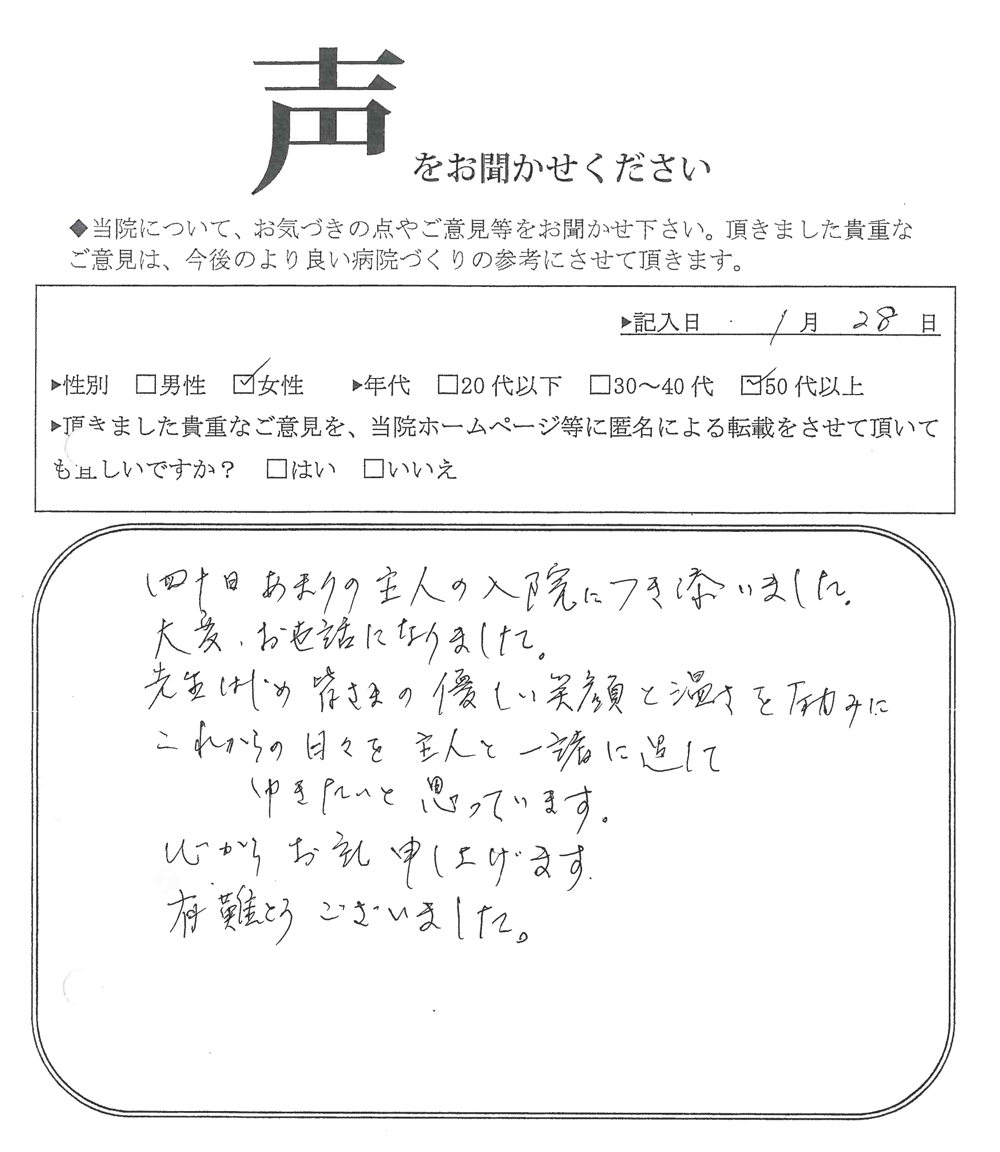 声をお聞かせください
◆当院について、お気づきの点やご意見等をお聞かせ下さい。頂きました貴重な
ご意見は、今後のより良い病院づくりの参考にさせて頂きます。
▶記入日 1月 28日
▶性別 □男性 ☑女性 ▶年代 □20代以下 □30～40代 ☑50代以上
▶頂きました貴重なご意見を、当院ホームページ等に匿名による転載をさせて頂いて
も宜しいですか？ □はい □いいえ
四十日あまりの主人の入院につき添いました。
大変、お世話になりました。
先生はじめ皆さまの優しい笑顔と温さを励みに
これからの日々を主人と一緒に過して
ゆきたいと思っています。
心からお礼申し上げます.
有難とうございました。